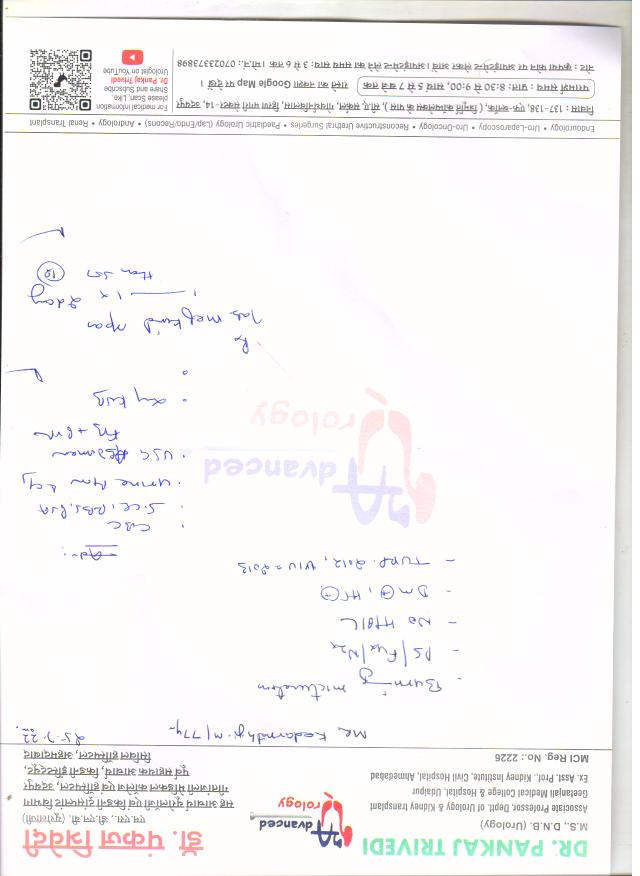 DR. PANKAJ TRIVEDI
M.S., D.N.B. (Urology)
Associate Professor, Deptt. of Urology & Kidney Transplant
Geetanjali Medical College & Hospital, Udaipur
Ex. Asst. Prof., Kidney Institute, Civil Hospital, Ahmedabad
MCI Reg. No.: 2226
Advanced
Urology
डॉ. पंकज त्रिवेदी
एम.एस., डी.एन.बी. (यूरोलॉजी)
सह आचार्य यूरोलॉजी एवं किडनी ट्रांसप्लांट विभाग
गीतांजली मेडिकल कॉलेज एवं हॉस्पिटल, उदयपुर
पूर्व सहायक आचार्य, किडनी इंस्टिट्यूट,
सिविल हॉस्पिटल, अहमदाबाद
Mr. M/77y
- Burning micturition
- No
- DM +, HT +
- TURP 2012, VIU = 2013
Adv:
. CBC
S.cr, RBS, PSA
. Urine
. USG
. X-ray KUB
Advanced
Urology
Rx
Tab
1 — 1 x
10
Endourology • Uro-Laparoscopy • Uro-Oncology • Reconstructive Urethral Surgeries • Paediatric Urology (Lap/Endo/Recons) • Andrology • Renal Transplant
निवास : 137-138, एफ-ब्लॉक, सी.ए. सर्कल, गोवर्धनविलास, हिरण मगरी सेक्टर-14, उदयपुर
परामर्श समय : प्रातः 8:30 से 9:00, सायं 5 से 7 बजे तक
रास्ते का नक्शा Google Map पर देखें ।
नोट : कृपया फोन पर अपॉइन्टमेन्ट लेकर आवें । अपॉइन्टमेन्ट लेने का समय सायं: 3 से 6 तक । मो.नं.: 07023373898
For medical information
please Scan, Like,
Share and Subscribe
Dr. Pankaj Trivedi
Urologist on YouTube